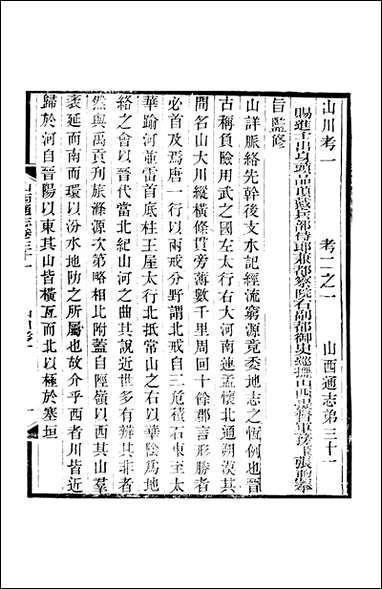 山川考一 考二之一 山西通志第三十一
賜進士出身頭品頂戴兵部侍郎兼都察院右副都御史巡撫山西提督軍務 張 奉
旨監修
山詳脈絡先幹後支水記經流窮源竟委地志之恆例也晉
古稱負險用武之國左太行右大河南連孟懷北通朔漠其
間名山大川縱橫條貫旁薄數千里周回十餘郡言形勝者
必首及焉唐一行以兩戒分野謂北戒自三危積石東至太
華踰河並雷首底柱王屋太行北抵常山之右以華陰爲地
絡之會以晉代當北紀山河之曲其說近世多有辨其非者
然與禹貢刋旅滌源次第略相比附蓋自陘嶺以西其山羣
袤延而南而環以汾水地防之所屬也故介乎西者川皆近
歸於河自晉陽以東其山皆橫亙而北以極於塞垣